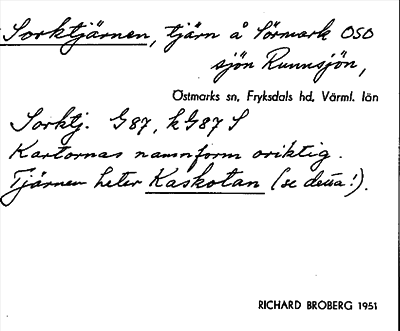 Sorktjärnen, tjärn å Sörmark OSO
sjön Runnsjön,
Östmarks sn, Fryksdals hd, Värml. län
Sorktj. G87, kG87 S
Kartornas namnform oriktig.
Tjärnen heter Kaskotan (se detta!).
RICHARD BROBERG 1951